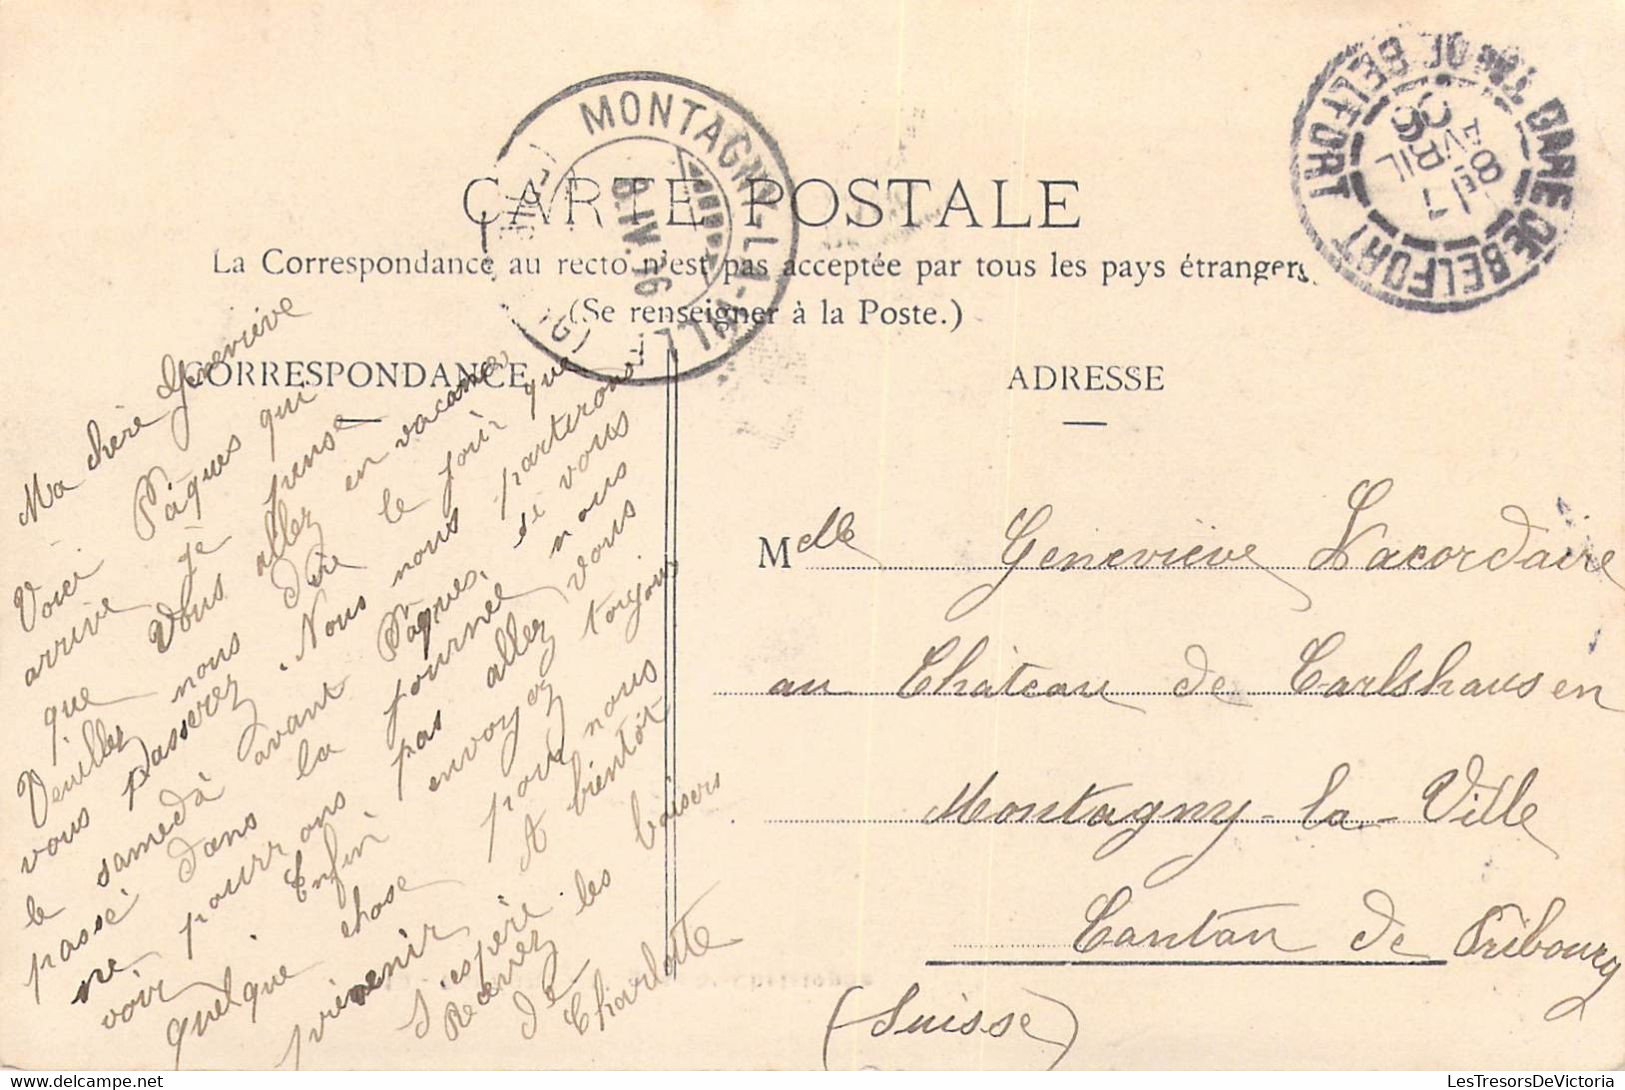 CARTE POSTALE
La Correspondance au recto n'est pas acceptée par tous les pays étrangers
(Se renseigner à la Poste.)
CORRESPONDANCE
ADRESSE
MONTAGNY-LA-VILLE
8.IV.
GARE DE BELFORT
BELFORT
AVRIL
Ma chère Geneviève
Voici Pâques qui
arrive je pense
que vous allez en vacances
Veuillez nous dire le jour que
vous passerez. Nous nous partirons
le samedà avant Pâques, si vous
passé dans la journée nous
ne pourrons pas allez vous
voir Enfin envoyez toujours
quelque chose pour nous
prévenir A bientôt
J'espère.
Recevez les baisers
de
Charlotte
Melle Geneviève Lacordaire
au Château de Carlshausen
Montagny-la-Ville
Canton de Fribourg
(Suisse)
LesTresorsDeVictoria
LesTresorsDeVictoria.com